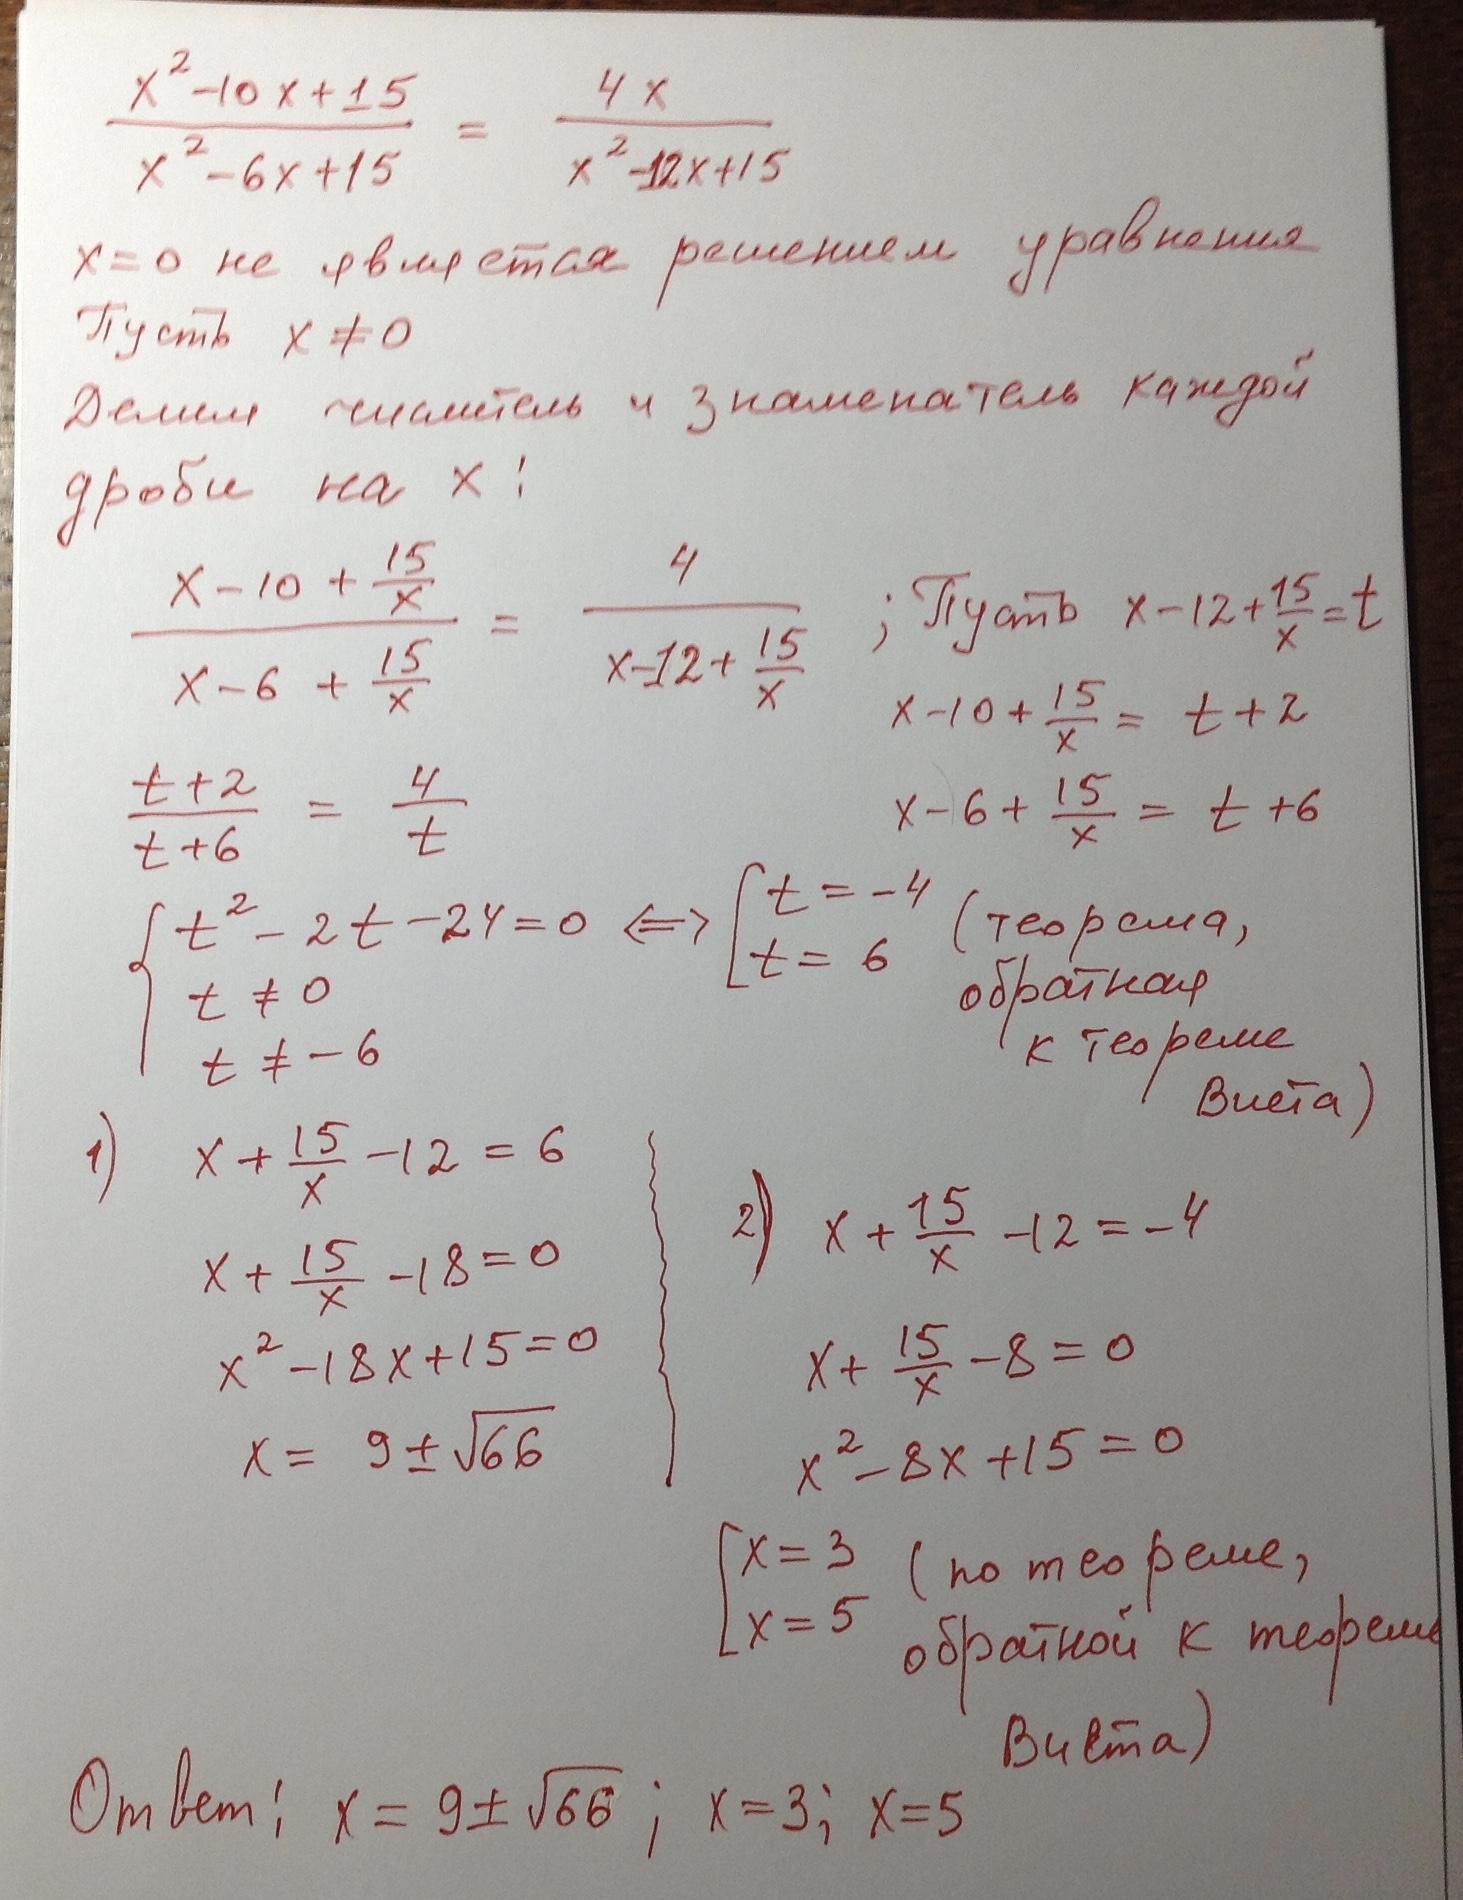 (x²-10x+15)/(x²-6x+15) = 4x/(x²-12x+15)
x=0 не является решением уравнения
Пусть x≠0
Делим числитель и знаменатель каждой
дроби на x:
(x-10+15/x)/(x-6+15/x) = 4/(x-12+15/x) ; Пусть x-12+15/x=t
x-10+15/x = t+2
x-6+15/x = t+6
(t+2)/(t+6) = 4/t
{ t²-2t-24=0 ⇔ [ t=-4
t≠0
t≠-6
t=6
(теорема,
обратная
к теореме
Виета)
1) x+15/x-12=6
x+15/x-18=0
x²-18x+15=0
x= 9±√66
2) x+15/x-12=-4
x+15/x-8=0
x²-8x+15=0
[ x=3 (по теореме,
x=5 обратной к теореме
Виета)
Ответ: x=9±√66; x=3; x=5